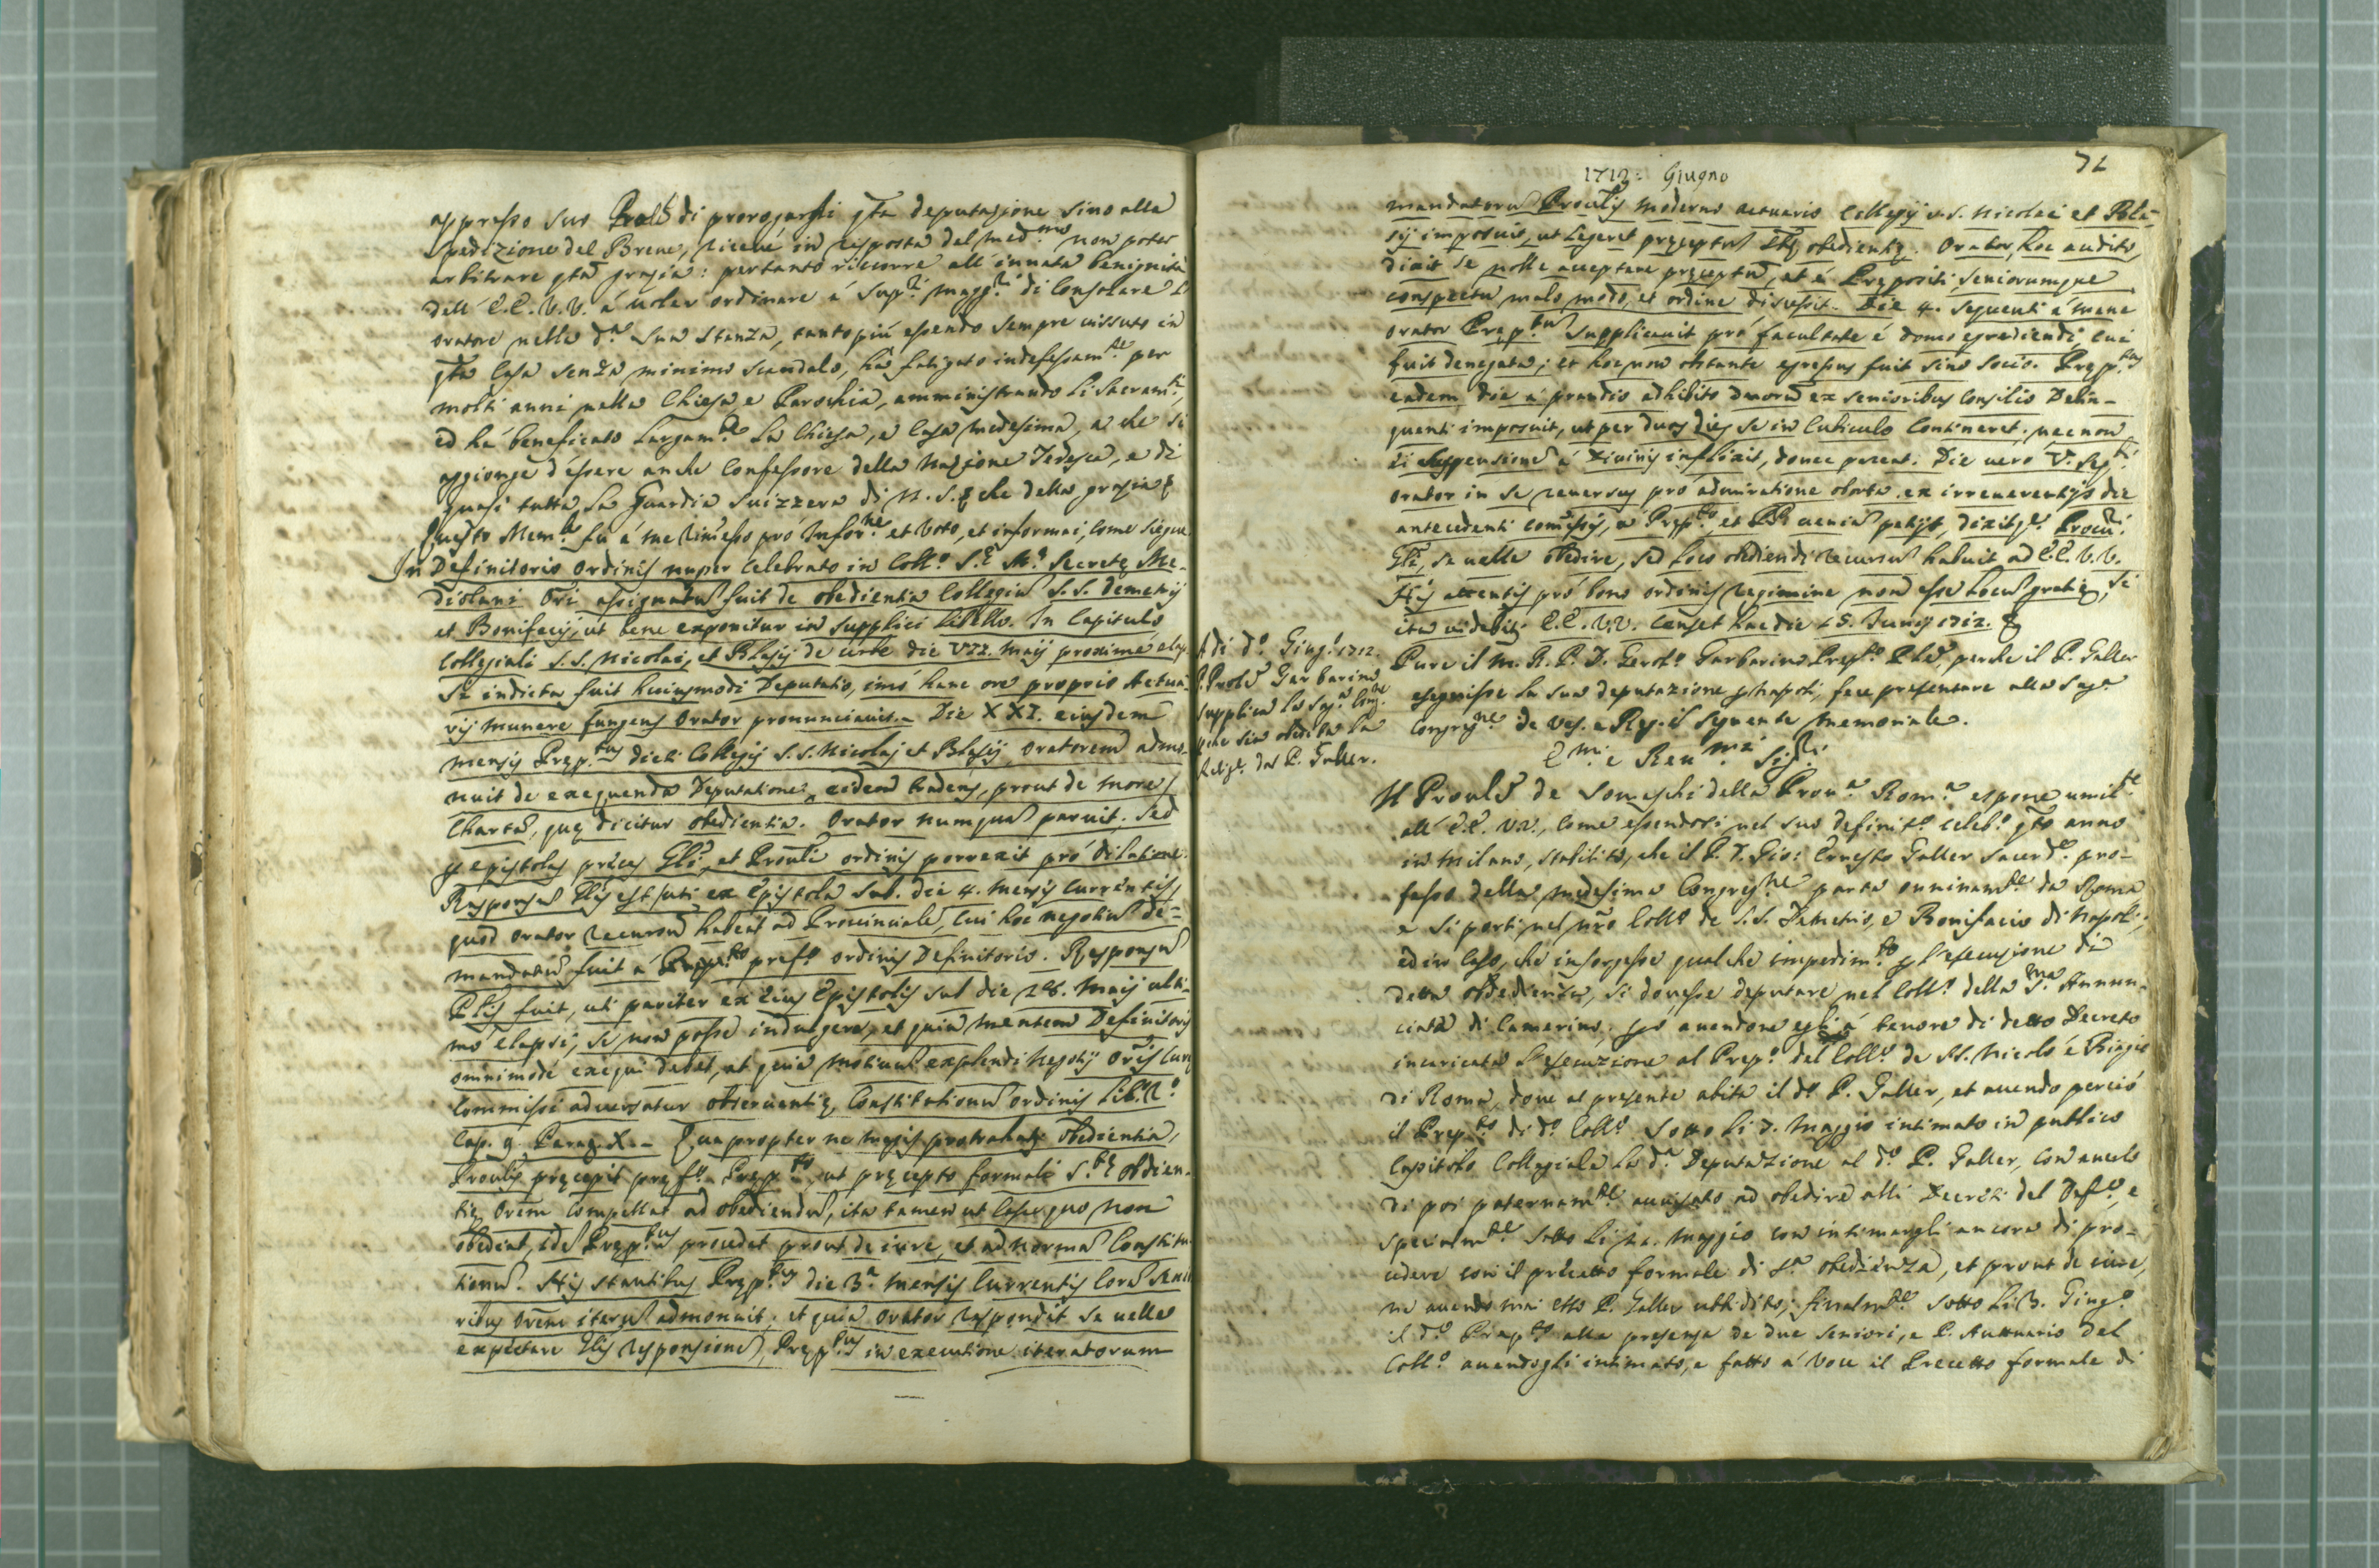 appresso suo Prole di prorogarsi qta deputazione sino alla
spedizione del Breve, ricevé in risposta dal med.mo non poter
arbitrare qta grazia: pertanto ricorre all'innata benignità
dell' E.E. V.V. á voler ordinare á Sup.ri magg.ri di consolare l'
oratore nella d.a sua stanza, tanto più essendo sempre vissuto in
qta Casa senza minimo scandalo, há fatigato indefessam.te per
molti anni nella Chiesa e Parochia, amministrando li Sacram.ti,
ed há beneficato largam.te la Chiesa, e Casa medesima, a che si
aggionge d'essere anche Confessore della Nazione Tedesca, e di
quasi tutta la Guardia Suizzera di N.S. che della grazia
Questo Mem.le fu á me rimesso pró Infor.ne et Voto, et informai, come siegue
In Definitorio Ordinis nuper celebrato in Coll.o S.æ M.æ Secretę Me-
diolani Ori assignatu fuit de obedientia Collegiu S.S. Demetrij
et Bonifacij, ut bene exponitur in supplici libello. In Capitulo
Collegiali S.S. Nicolai, et Blasij de Urbe die VII. Maij proximé elap-
sa indicta fuit huiusmodi Deputatio, imó hanc ore proprio Actua-
rij munere fungens Orator pronunciavit. Die XXI. eiusdem
mensis Pręp.tus dicti Collegij S.S. Nicolaj et Blasij Oratorem admo-
nuit de exequenda Deputatione, eidem tradens, prout de more,
Charta, quę dicitur obedientia. Orator numqua paruit, sed
p epistolas preces Gli, et Prouli ordinis porrexit pró dilatione.
Responsu Glis est, uti ex Epistola sub. die 4. mensis currentis,
quod Orator recursum habeat ad Provinciale, cui hoc negotiu de-
mandatu fuit á pref.o ordinis Definitorio. Responsu
Plis fuit, uti pariter ex eius Epistolis sub die 28. Maij ulti-
mó elapsi, se non posse indulgere, et quia mentem Definitorij
omnimodé exequi debet, et quia motiuu explendi negotij Oris curę
commissi adversatur observantię Constitutionu ordinis lib.
Cap. 9. Parag. X. Quapropter ne magis protrahatr obedientia,
Proulis pręcepit pręf.o Pręp.to, ut pręcepto formali S.tę obdien-
tię Orem compellat ad obediendu, ita tamen ut casu quo non
obediat, ide Pręp.tus procedat prout de iure, et ad norma Constitu-
tionu. His stantibus Pręp.tus die 3.a mensis currentis cora senio-
ribus Orem iteru admonuit, et quia Orator respondit se uelle
expectare Glis responsione, Pręp.tus in executione iteratorum
1712: Giugno
72
mandatoru Proulis moderno actuario Collegij S.S. Nicolai et Bla-
sij imposuit, ut legeret pręceptu Stę obedientię. Orator, hoc audito,
dixit se nolle acceptare pręceptu, et á Prępositi, seniorumque
conspectu malo modo, et ordine discessit. Die 4. sequenti á mane
orator Pręp.tu supplicavit pró facultate é domo egrediendi, cui
fuit denegata; et hoc non obstante egressus fuit sine socio. Pręp.tus
eadem die á prandio adhibito duorum ex senioribus consilio Delin-
quenti imposuit, ut per duos dies se in cubiculo contineret, necnon
ei suspensione á Divinis inflixit, donec pareat. Die uero V.
orator in se reversus pró admiratione oborta ex irreverentijs die
antecedenti comissis, a Pręp.to et PP. uenia petijt, dixitq.
Gli, se uelle obedire, sed loco obediendi recursu habuit ad E.E. V.V.
His attentis pró bono ordinis regimine non esse locu gratię, si
ita videbitr E.E. V.V. Censet hac die 15. Junij 1712.
A di d.o Giug.o 1712.
P. Prole Garbarino
supplica la Sag.a Cong.ne
che sia obedita la
Relig.e dal P. Galler.
Pure il M. R. P. D. Gerol.o Garbarino Prep.to Ple, perche il P. Galler
eseguisse la sua deputazione p Napoli, fece presentare alla Sag.a
Congreg.ne de Ves. e Reg. il seguente memoriale.
E.mi e Reu.mi Sig.ri
Il Proule de Somaschi della Prou.a Rom.a espone umilte
all' E.E. VV., come essendosi nel suo definit.o celeb.o qto anno
in Milano, stabilito, che il P. D. Gio: Ernesto Galler Sacerd.e pro-
fesso della medesima Congreg.ne parta onninam.te da Roma
e si porti nel nro Coll.o de S.S. Demetrio, e Bonifacio di Napoli;
ed in caso, che insorgesse qualche impedim.to p l'esecuzione di
detta obbedienza, si dovesse deputare nel Coll.o della S.ma Annun-
ciata di Camerino; avendone egli á tenore di detto Decreto
incaricata l'esecuzione al Prep.o del Coll.o de SS. Nicoló e Biagio
di Roma, dove al presente abita il d.o P. Galler, et avendo perció
il Prep.to di d.o Coll.o sotto li 7. Maggio intimato in publico
Capitolo Collegiale la d.a Deputazione al d.o P. Galler, con averlo
di poi paternam.te avvisato ad obedire alli Decreti del Def.o, e
specialm.te sotto li 21. Maggio con intimargli ancora di pro-
cedere con il precetto formale di S.ta obedienza, et prout de iure,
ne avendo mai etto P. Galler ubbidito; finalm.te sotto li 3. Giug.o
il d.o Prep.to alla presenza de due seniori, e P. Attuario del
Coll.o avendogli intimato, e fatto á voce il Precetto formale di